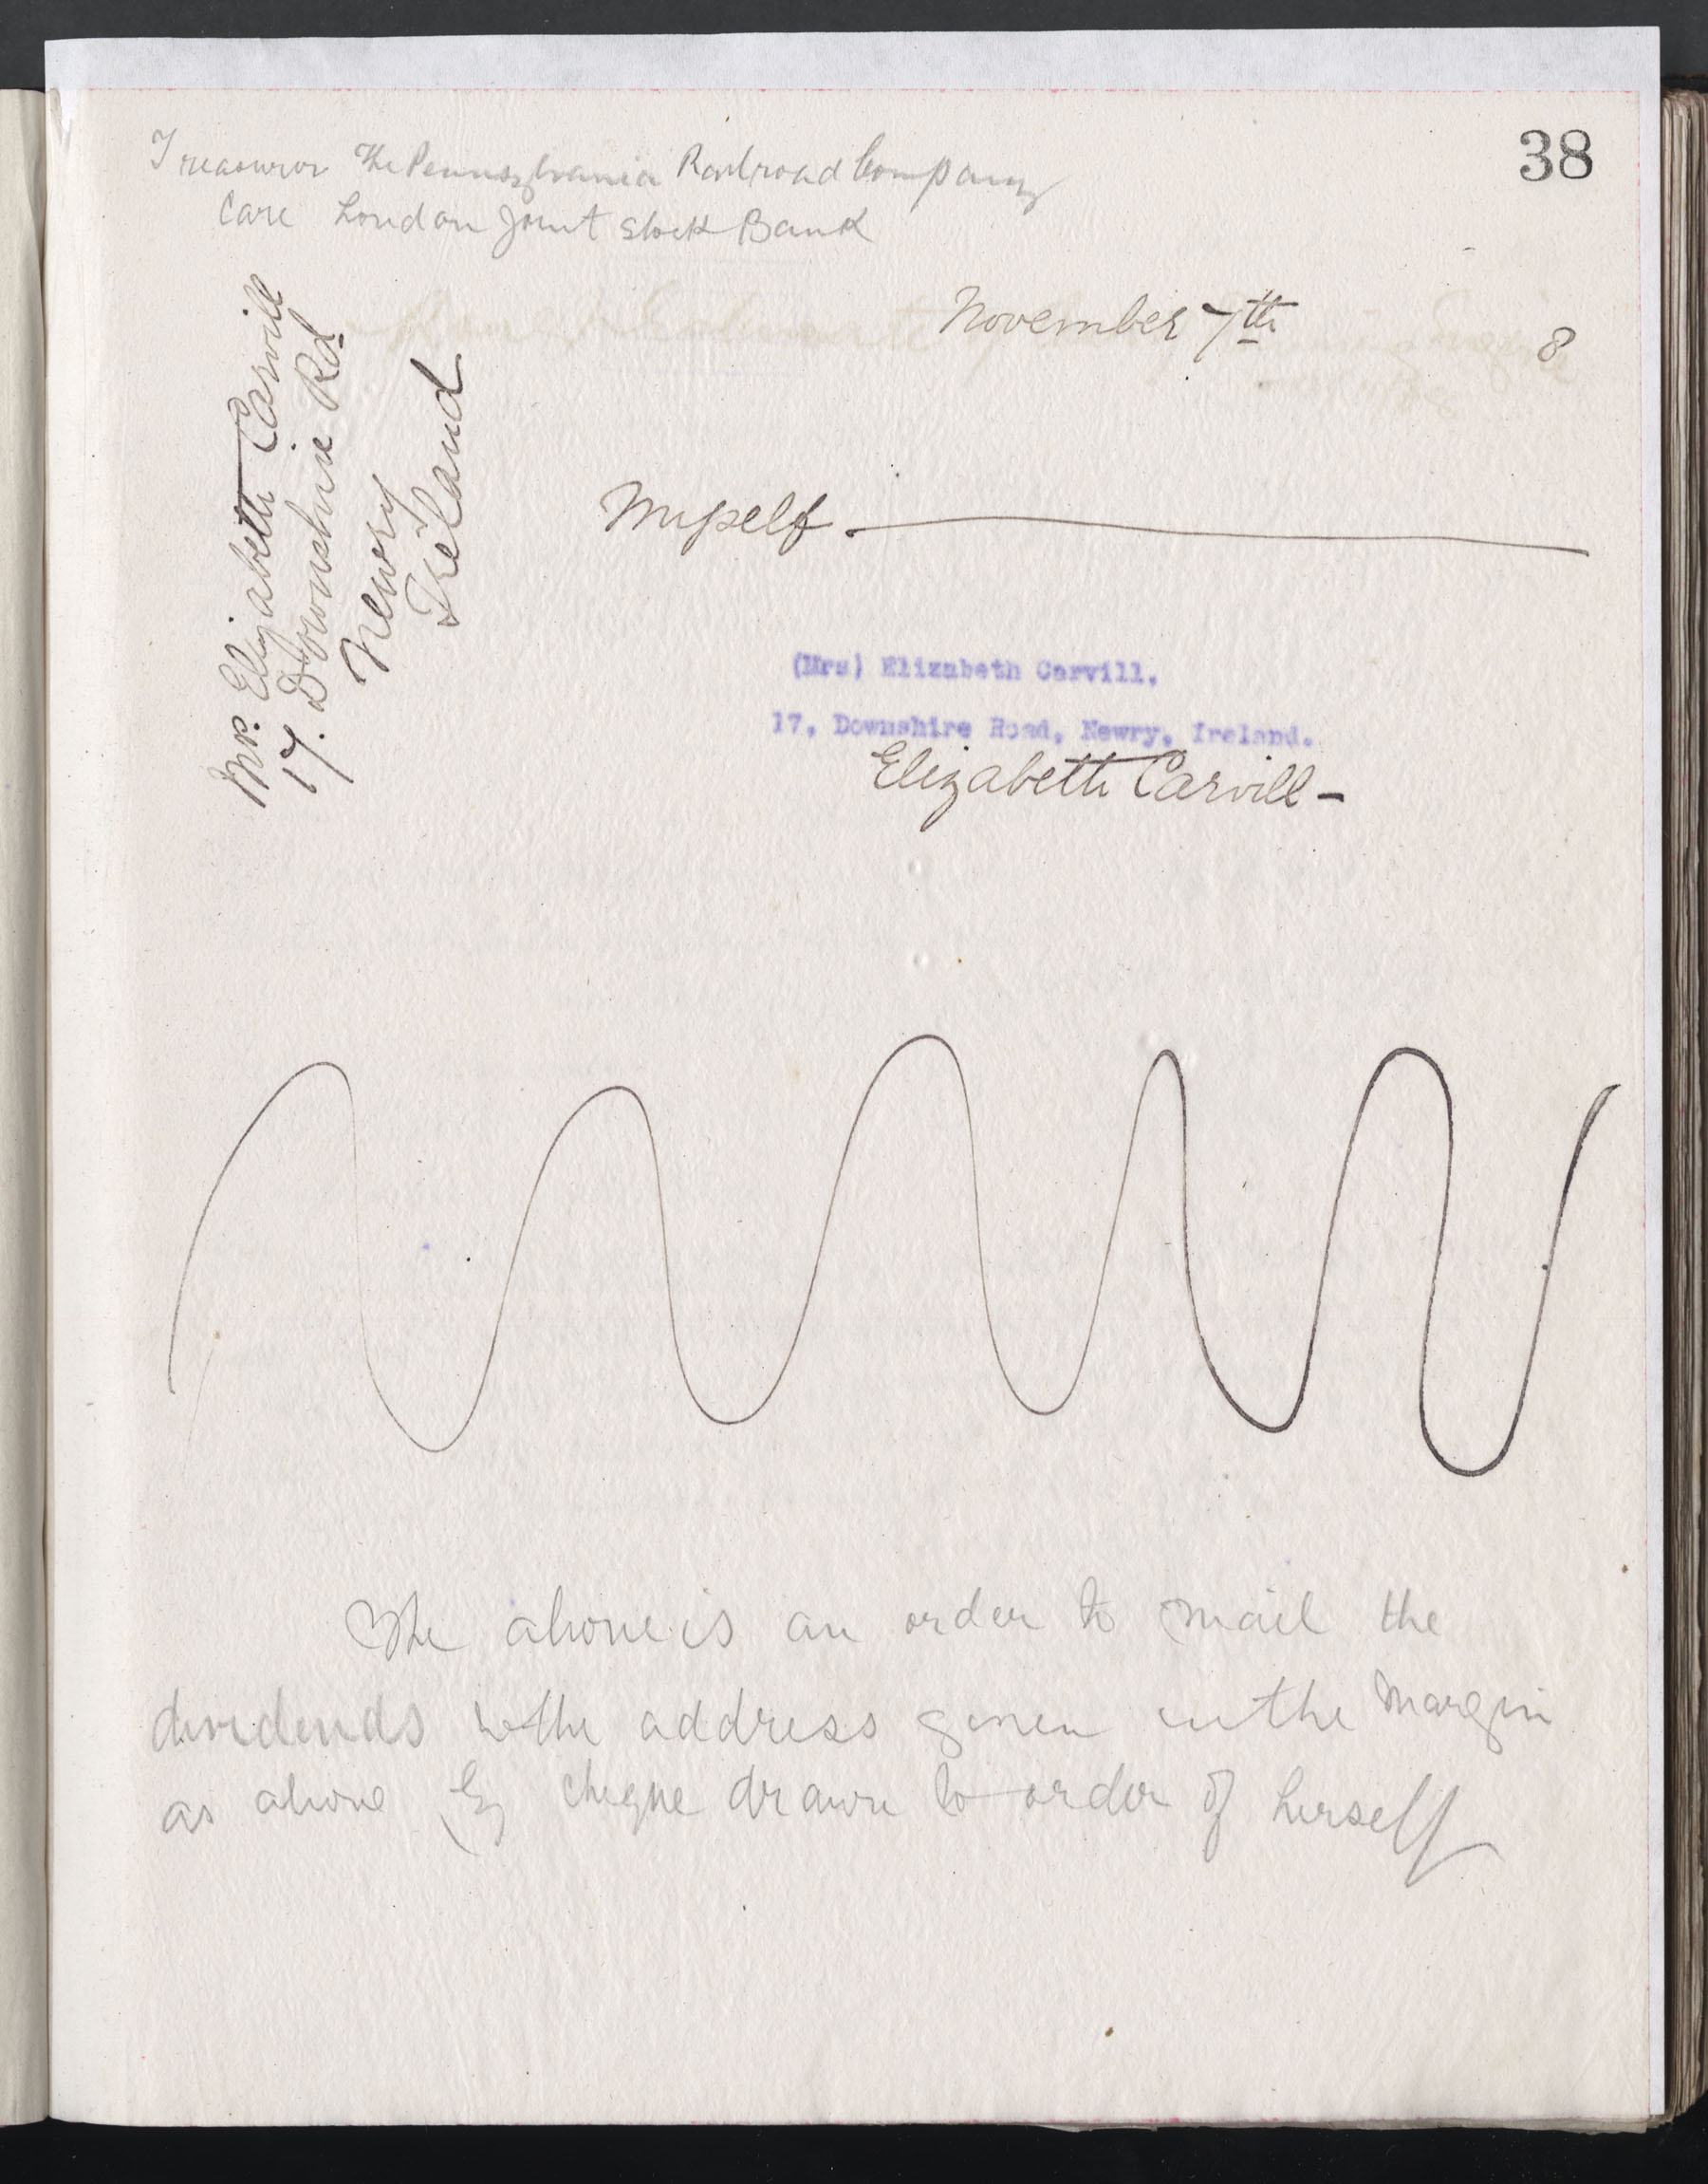 38
Treasurer The Pennsylvania Railroad Company
Care London Joint Stock Bank
November 7th 8
Mrs. Elizabeth Carvill
17. Downshire Rd
Newry
Ireland
Myself.
(Mrs) Elizabeth Carvill,
17, Downshire Road, Newry, Ireland.
Elizabeth Carvill -
The above is an order to mail the
dividends to the address given in the margin
as above by cheque drawn to order of herself